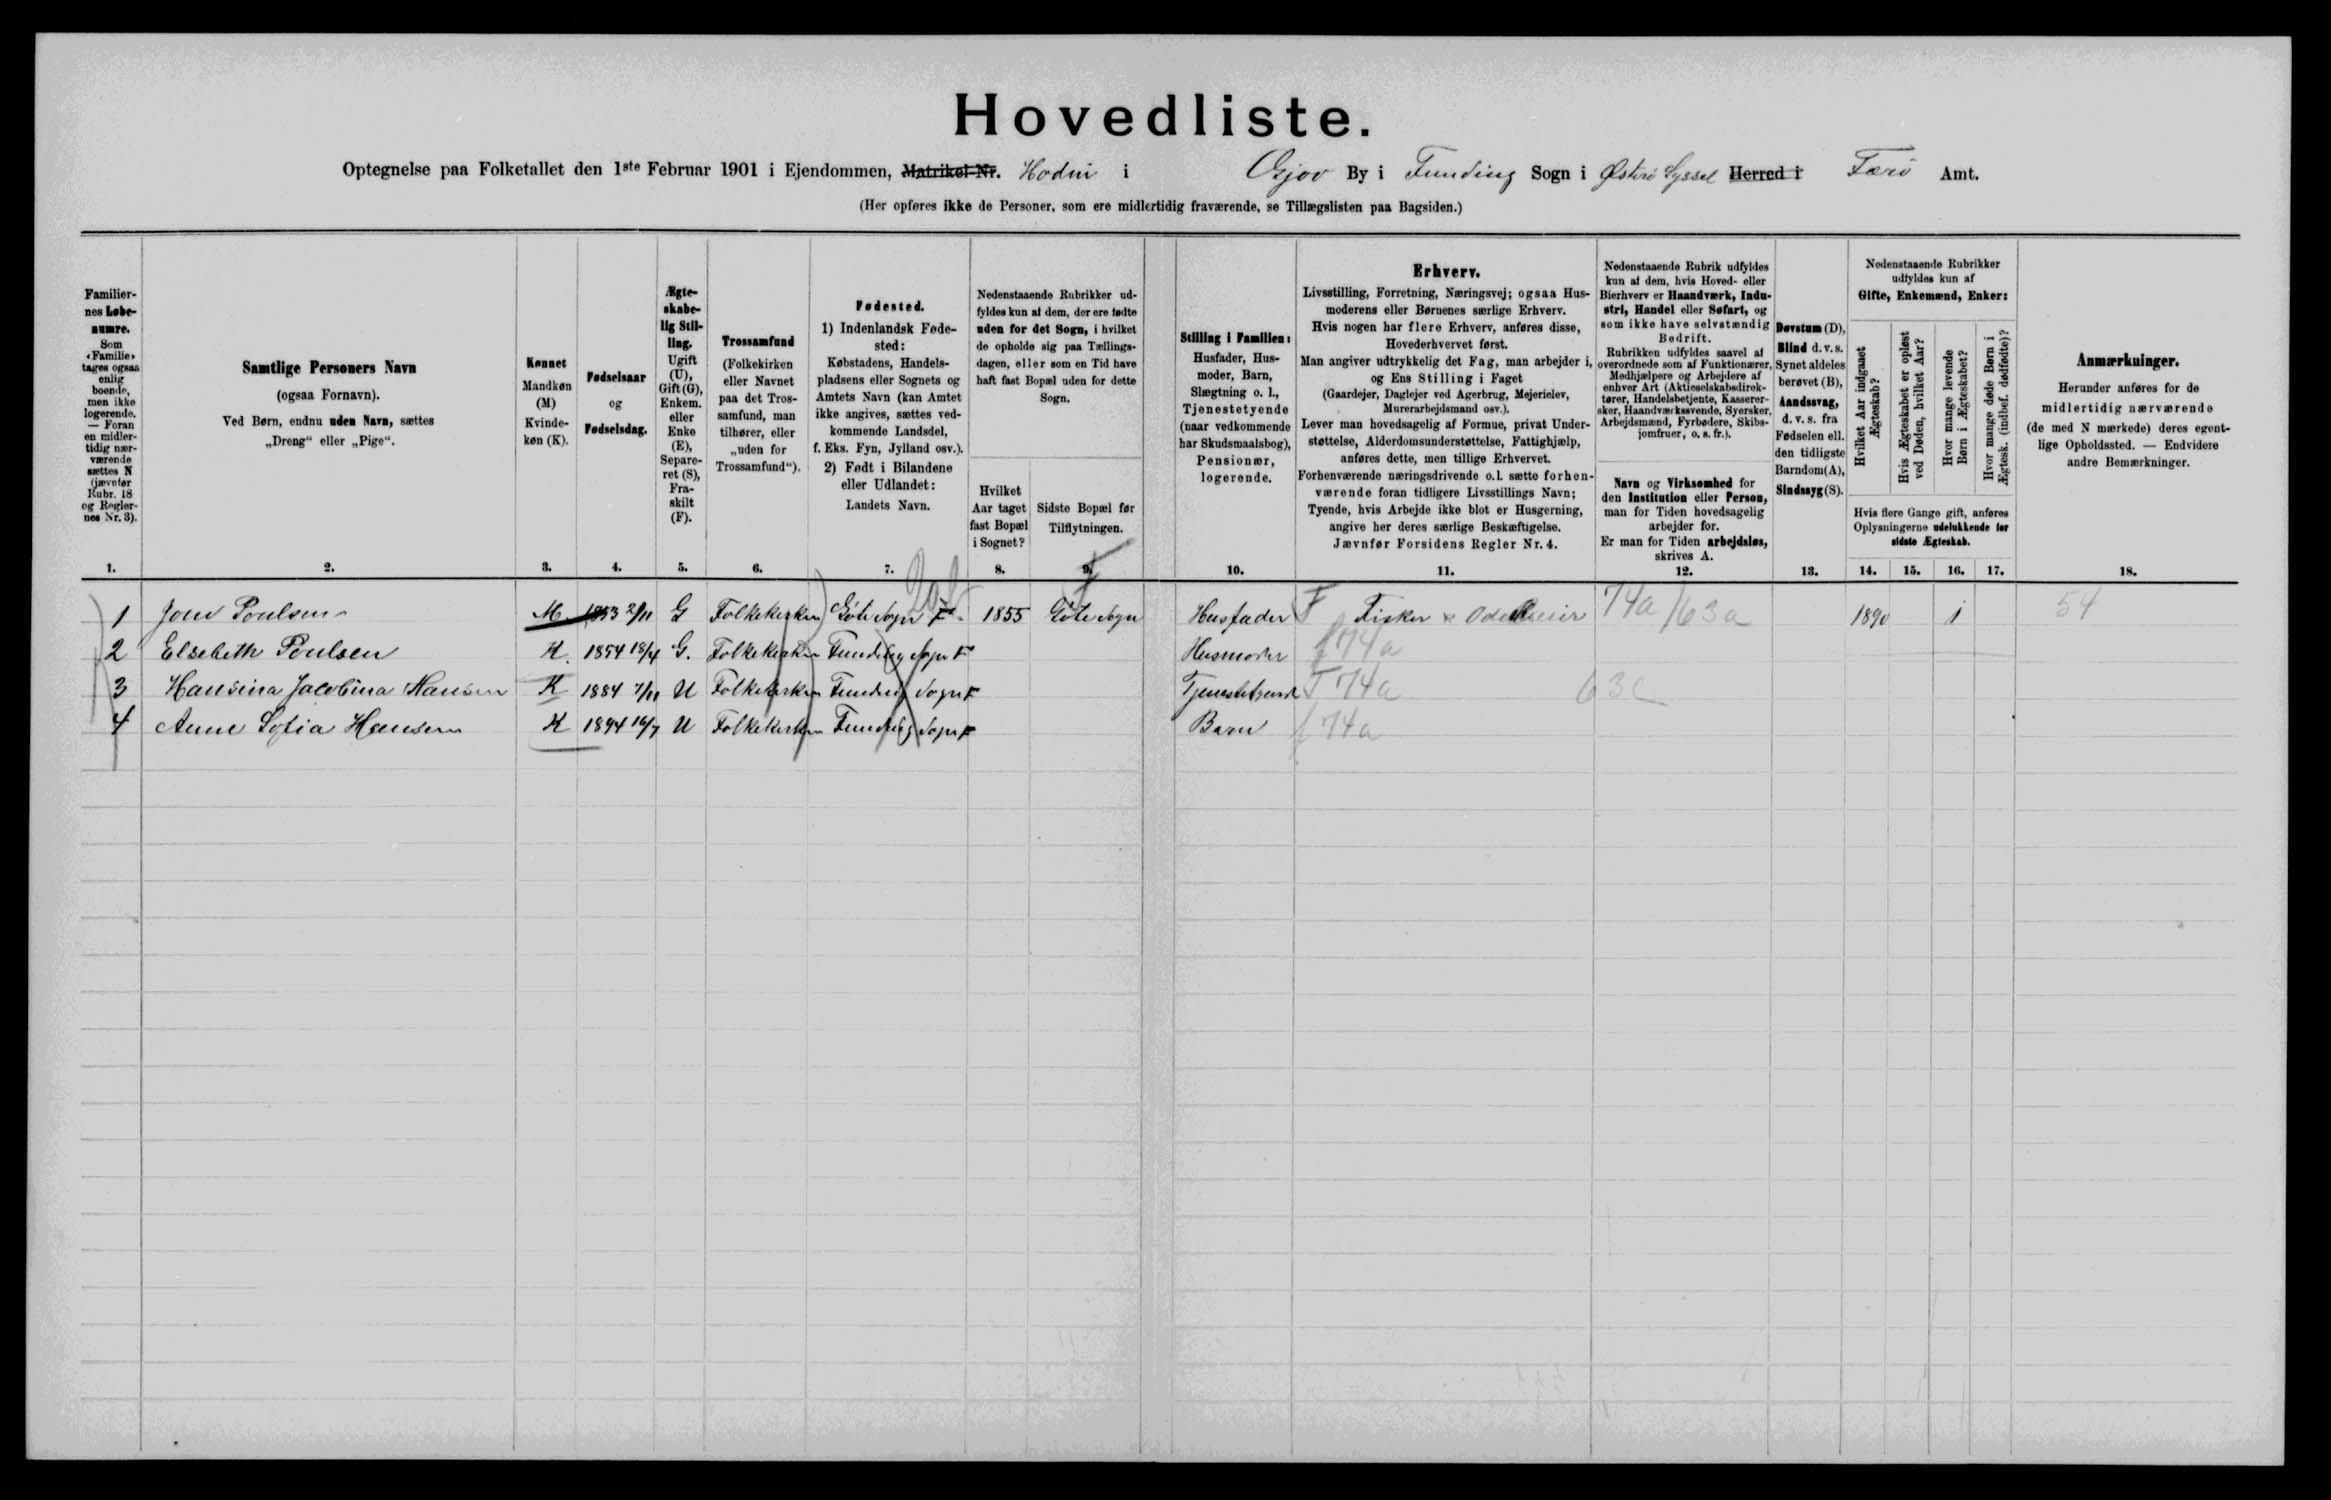 Hovedliste.
Optegnelse paa Folketallet den 1ste Februar 1901 i Ejendommen, Matrikel-Nr. Hodni i Gjov By i Funding Sogn i Østerø Syssel Herred i Færø Amt.
(Her opføres ikke de Personer, som ere midlertidig fraværende, se Tillægslisten paa Bagsiden.)
Familiernes Løbenumre.
Som
«Familie»
tages ogsaa
enlig
boende,
men ikke
logerende.
— Foran
en midler-
tidig nær-
værende
sættes N
(jævnfør
Rubr. 18
og Regler-
nes Nr. 3).
1.
Samtlige Personers Navn
(ogsaa Fornavn).
Ved Børn, endnu uden Navn, sættes
„Dreng“ eller „Pige“.
2.
Kønnet
Mandkøn
(M)
Kvinde-
køn (K).
3.
Fødselsaar
og
Fødselsdag.
4.
Ægte-
skabe-
lig Stil-
ling.
Ugift
(U),
Gift (G),
Enkem.
eller
Enke
(E),
Separe-
ret (S),
Fra-
skilt
(F).
5.
Trossamfund
(Folkekirken
eller Navnet
paa det Tros-
samfund, man
tilhører, eller
„uden for
Trossamfund“).
6.
Fødested.
1) Indenlandsk Føde-
sted:
Købstadens, Handels-
pladsens eller Sognets og
Amtets Navn (kan Amtet
ikke angives, sættes ved-
kommende Landsdel,
f. Eks. Fyn, Jylland osv.).
2) Født i Bilandene
eller Udlandet:
Landets Navn.
7.
Nedenstaaende Rubrikker ud-
fyldes kun af dem, der ere fødte
uden for det Sogn, i hvilket
de opholde sig paa Tællings-
dagen, eller som en Tid have
haft fast Bopæl uden for dette
Sogn.
Hvilket
Aar taget
fast Bopæl
i Sognet?
8.
Sidste Bopæl før
Tilflytningen.
9.
Stilling i Familien:
Husfader, Hus-
moder, Barn,
Slægtning o. l.,
Tjenestetyende
(naar vedkommende
har Skudsmaalsbog),
Pensionær,
logerende.
10.
Erhverv.
Livsstilling, Forretning, Næringsvej; ogsaa Hus-
moderens eller Børnenes særlige Erhverv.
Hvis nogen har flere Erhverv, anføres disse,
Hovederhvervet først.
Man angiver udtrykkelig det Fag, man arbejder i,
og Ens Stilling i Faget
(Gaardejer, Daglejer ved Agerbrug, Mejerielev,
Murerarbejdsmand osv.).
Lever man hovedsagelig af Formue, privat Under-
støttelse, Alderdomsunderstøttelse, Fattighjælp,
anføres dette, men tillige Erhvervet.
Forhenværende næringsdrivende o.l. sætte forhen-
værende foran tidligere Livsstillings Navn;
Tyende, hvis Arbejde ikke blot er Husgerning,
angive her deres særlige Beskæftigelse.
Jævnfør Forsidens Regler Nr. 4.
11.
Nedenstaaende Rubrik udfyldes
kun af dem, hvis Hoved- eller
Bierhverv er Haandværk, Indu-
stri, Handel eller Søfart, og
som ikke have selvstændig
Bedrift.
Rubrikken udfyldes saavel af
overordnede som af Funktionærer,
Medhjælpere og Arbejdere af
enhver Art (Aktieselskabsdirek-
tører, Handelsbetjente, Kasserer-
sker, Haandværkssvende, Syersker,
Arbejdsmænd, Fyrbødere, Skibs-
jomfruer, o. s. fr.).
Navn og Virksomhed for
den Institution eller Person,
man for Tiden hovedsagelig
arbejder for.
Er man for Tiden arbejdsløs,
skrives A.
12.
Døvstum (D),
Blind d. v. s.
Synet aldeles
berøvet (B),
Aandssvag,
d. v. s. fra
Fødselen ell.
den tidligste
Barndom (A),
Sindssyg (S).
13.
Nedenstaaende Rubrikker
udfyldes kun af
Gifte, Enkemænd, Enker:
Hvilket Aar indgaaet
Ægteskab?
Hvis Ægteskabet er opløst
ved Døden, hvilket Aar?
Hvor mange levende
Børn i Ægteskabet?
Hvor mange døde Børn i
Ægtesk. (indbef. dødfødte)?
Hvis flere Gange gift, anføres
Oplysningerne udelukkende for
sidste Ægteskab.
14. 15. 16. 17.
Anmærkninger.
Herunder anføres for de
midlertidig nærværende
(de med N mærkede) deres egent-
lige Opholdssted. — Endvidere
andre Bemærkninger.
18.
1 Poulsen M. 1853 2/11 G Folkekirken Gøte Sogn F. 1855 Gøte Sogn Husfader F Fisker 74a /63a 1890 1 54
2 Elsebeth Poulsen K. 1854 18/4 G. Folkekirken Funding Sogn F Husmoder f 74a
3 Hansina Jacobina Hansen K 1884 7/11 U Folkekirken Funding Sogn F Tjenestetyende T 74a 63c
4 Anne Sofia Hansen K 1894 16/7 U Folkekirken Funding Sogn F Barn f 74a